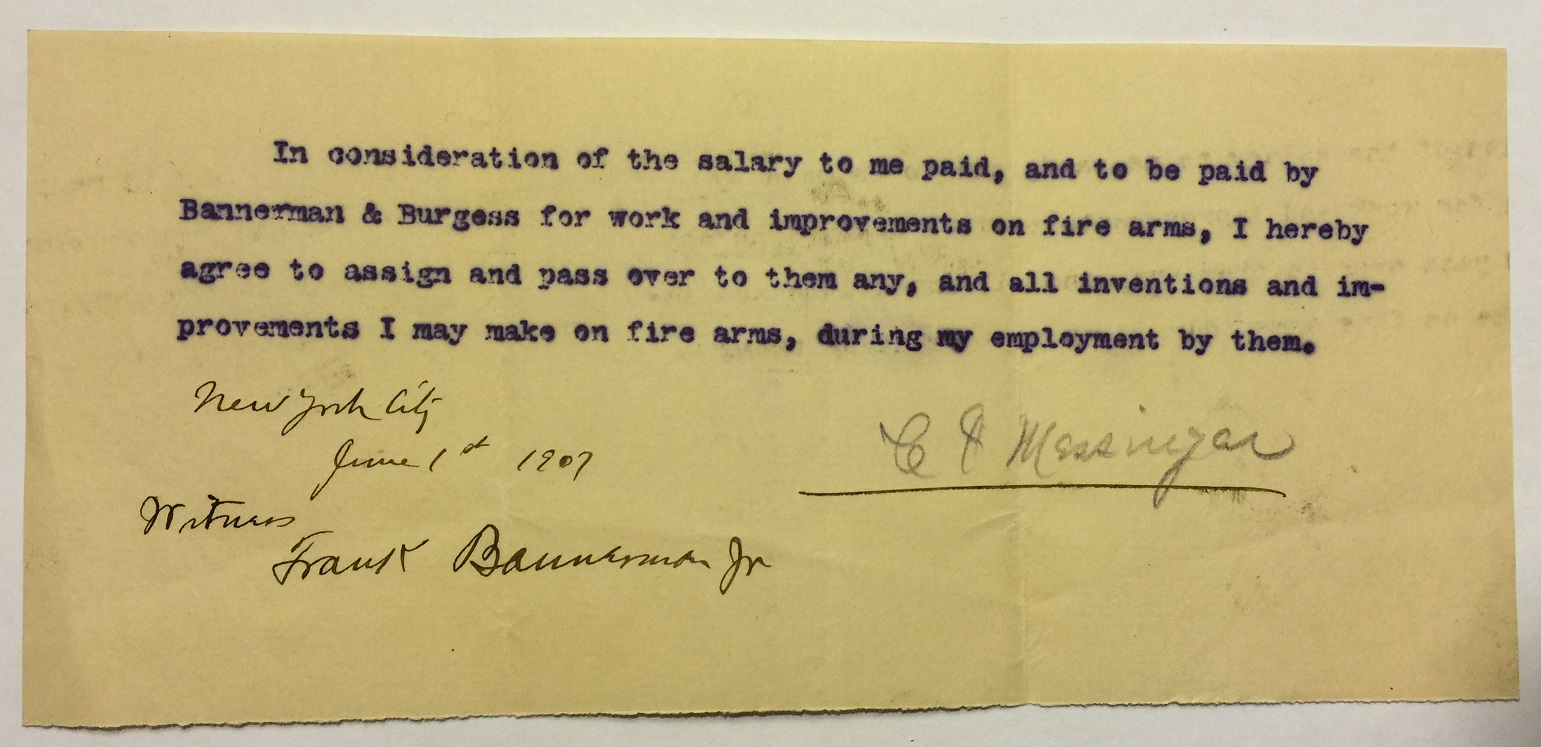 In consideration of the salary to me paid, and to be paid by
Bannerman & Burgess for work and improvements on fire arms, I hereby
agree to assign and pass over to them any, and all inventions and im-
provements I may make on fire arms, during my employment by them.
New York City
June 1st 1907
C F Messinger
Witness
Frank Bannerman Jr